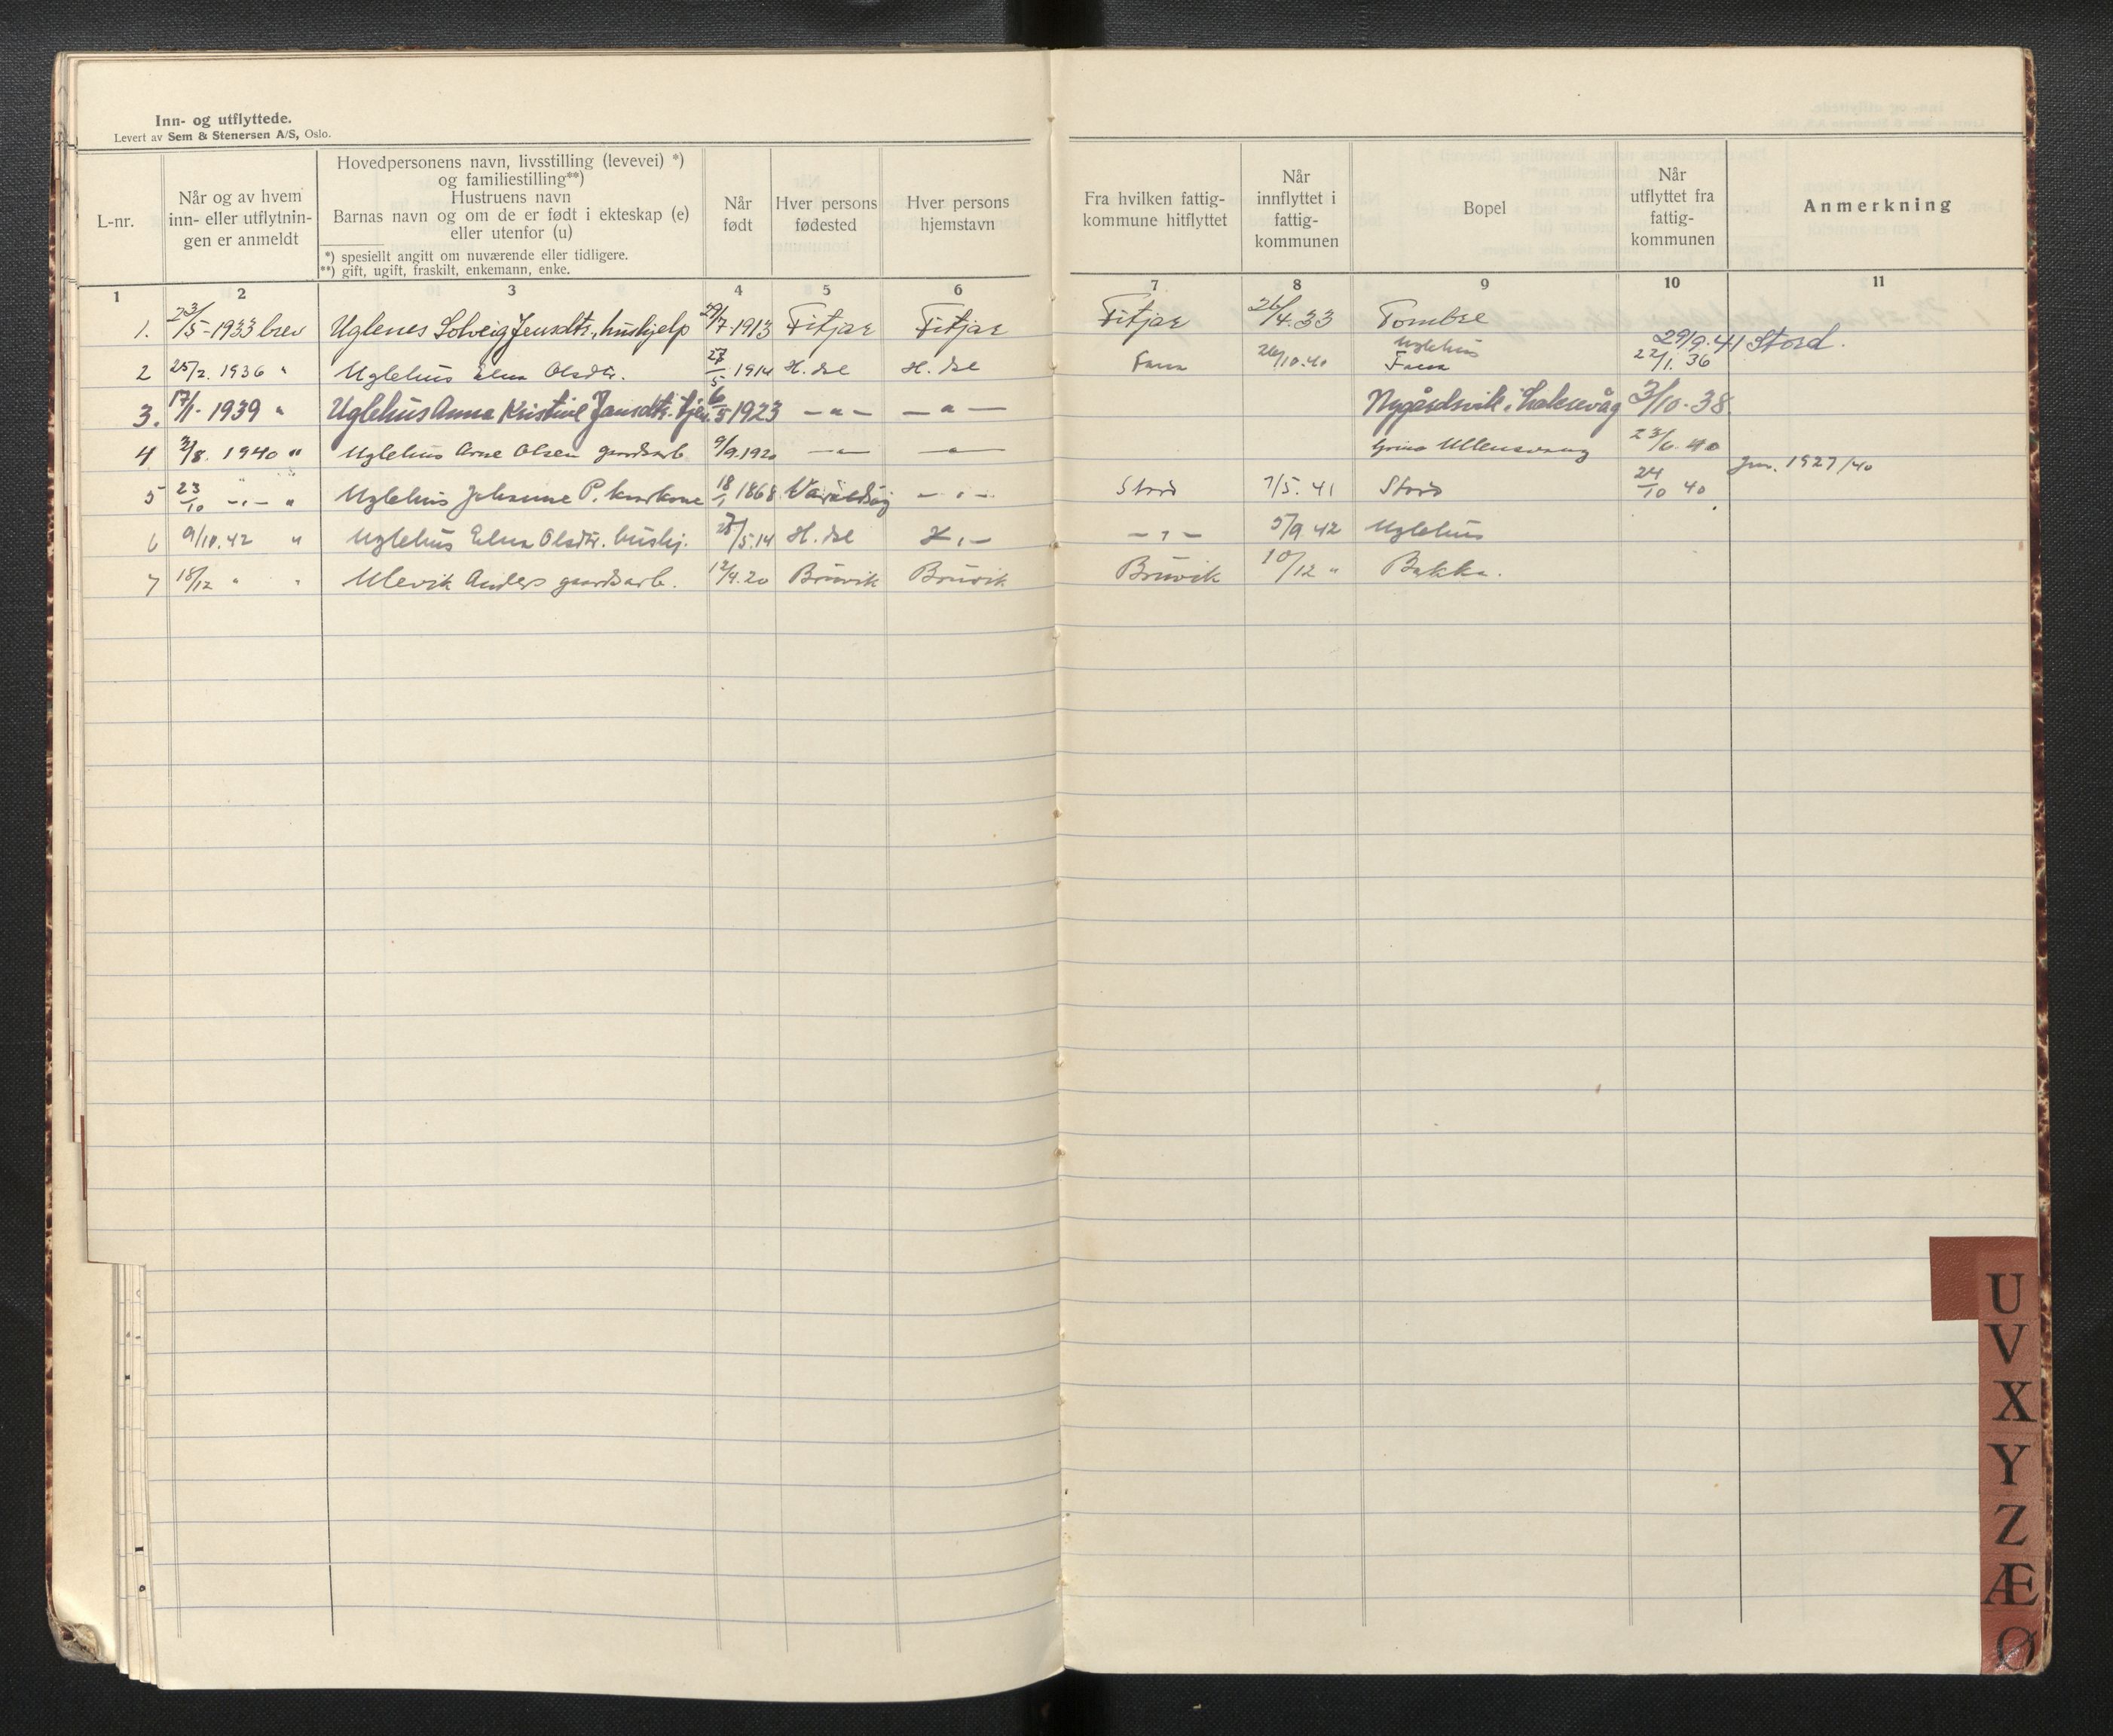 Inn- og utflyttede.
Levert av Sem & Stenersen A/S, Oslo.
L-nr.
Når og av hvem
inn- eller utflytnin-
gen er anmeldt
Hovedpersonens navn, livsstilling (levevei) *)
og familiestilling**)
Hustruens navn
Barnas navn og om de er født i ekteskap (e)
eller utenfor (u)
*) spesiellt angitt om nuværende eller tidligere.
**) gift, ugift, fraskilt, enkemann, enke.
Når
født
Hver persons
fødested
Hver persons
hjemstavn
Fra hvilken fattig-
kommune hitflyttet
Når
innflyttet i
fattig-
kommunen
Bopel
Når
utflyttet fra
fattig-
kommunen
Anmerkning
1 2 3 4 5 6 7 8 9 10 11
1. 23/5-1933 brev Uglenes Solveig Jensdtr., hushjelp 29/7-1913 Fitjar Fitjar Fitjar 26/4.33 Tombre
29/9.41 Stord.
Uglehus
2 25/2. 1936 " Uglehus Elna Olsdtr. 27/5 1914 H.del H.del Fana 26/10.40 Fana 22/1. 36
3. 17/1-1939 " Uglehus Anna Kristine Jansdtr. tjen. 6/5 1923 -"- -"- Nygårdsvik, Laksevåg 3/10-38
4 3/8. 1940 " Uglehus Arne Olsen gaardsarb 9/9.1920 -"- -"- Ullensvang 23/6. 40
5 23/10 -"- " Uglehus Johanne P. 18/1 1868 Varaldsøy -"- Stord 7/5. 41 Stord 24/10 40 1927/40
6 9/10.42 " Uglehus Elna Olsdtr. hushj. 27/5.14 H.del -"- -"- 5/9 42 Uglehus
7 18/12 " " Ulevik Anders gaardsarb. 12/4.20 Bruvik Bruvik Bruvik 10/12 " Bakka.
U
V
X
Y
Z
Æ
Ø